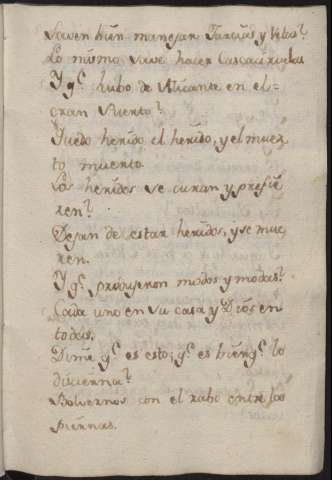 Saven bien manejar Jarcias y Velas?
Lo mismo save hacer Cascaciruelas
Y q.e hubo de Alicante en el
gran Puerto?
Quedó herido el herido, y el muer
to muerto.
Los heridos se curan y prefie
ren?
Dejan de estar heridos, y se mue
ren.
Y q.e produjeron modos y modas?
Cada uno en su casa y Dios en
todas.
Dime q.e es esto, q.e es bien q.e lo
discierna?
Bolvernos con el rabo entre las
piernas.